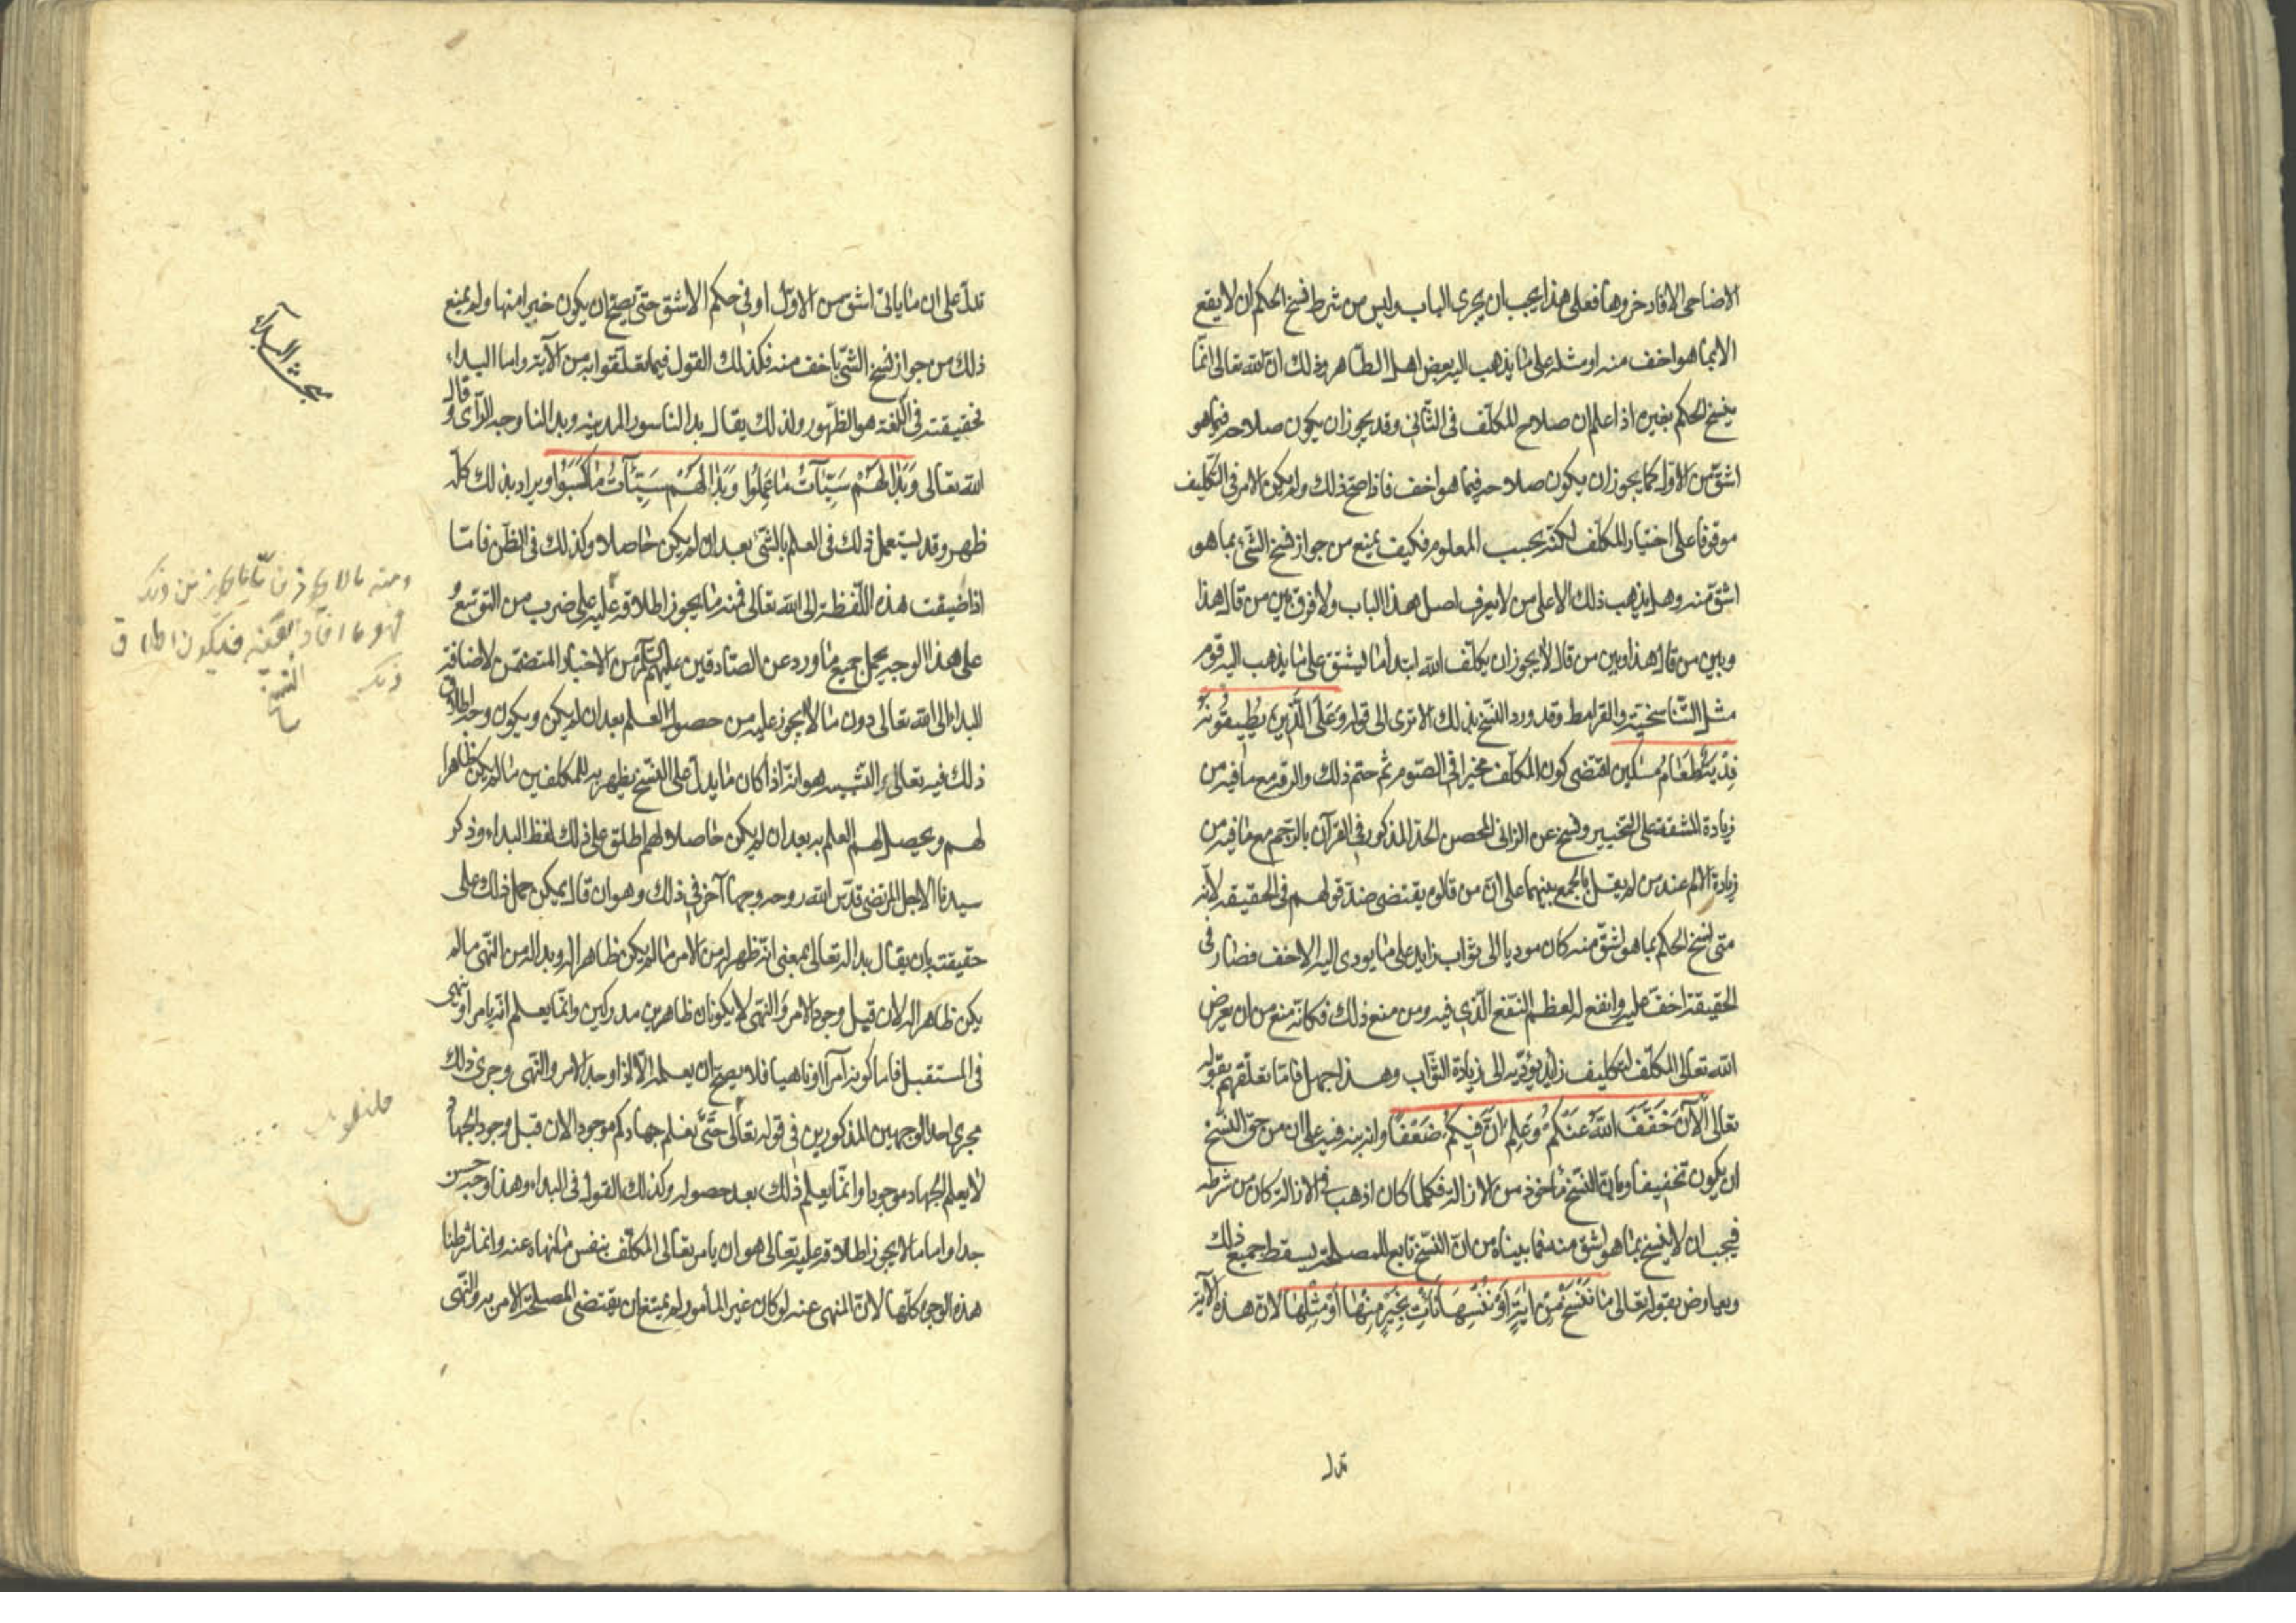 الاضاحى الا فادخروها فعلى هذا يجب ان يجرى الباب وليس من شرط نسخ الحكم ان لا يقع
الا بما هو اخف منه او مثله على ما يذهب اليه بعض اهل الظاهر وذلك ان الله تعالى انما
ينسخ الحكم بغيره اذا علم ان صلاح المكلف فى الثانى وقد يجوز ان يكون صلاحه فيما هو
اشق من الاول كما يجوز ان يكون صلاحه فيما هو اخف فاذا صح ذلك ولم يكن الامر فى التكليف
موقوفا على اختيار المكلف لكنه بحسب المعلوم فكيف يمنع من جواز نسخ الشئ بما هو
اشق منه وهل يذهب ذلك الا على من لا يعرف اصل هذا الباب ولا فرق بين من قال هذا
وبين من قال هذا وبين من قال لا يجوز ان يكلف الله ابتدا ما يشق على ما يذهب اليه قوم
مثل التناسخية والقرامط وقد ورد النسخ بذلك الا ترى الى قوله وَعَلَى الَّذِينَ يُطِيقُونَهُ
فِدْيَةٌ طَعَامُ مِسْكِينٍ اقتضى كون المكلف مخيرا فى الصوم ثم حتم ذلك والزمه مع ما فيه من
زيادة المشقة على التخيير ونسخ عن الزانى المحصن الحد المذكور فى القرآن بالرجم مع ما فيه من
زيادة الالم عند من لم يقل بالجمع بينهما على ان من قالوه يقتضى ضد قولهم فى الحقيقة لانه
متى نسخ الحكم بما هو اشق منه كان موديا الى ثواب زايد على ما يودى اليه الاخف فصار فى
الحقيقة اخف عليه وانفع له لعظم النفع الذى فيه ومن منع ذلك فكانه منع من ان يعرض
الله تعالى المكلف لتكليف زايد يؤديه الى زيادة الثواب وهذا جهل فاما تعلقهم بقوله
تعالى اَلْآنَ خَفَّفَ اللهُ عَنْكُمْ وَعَلِمَ اَنَّ فِيكُمْ ضَعْفًا وانه نبه فيه على ان من حق النسخ
ان يكون تخفيفا وبان النسخ ماخوذ من الازالة فكلما كان اذهب فى الازالة كان من شرطه
فيجب ان لا ينسخ بما هو اشق منه فما بيناه من ان النسخ تابع للمصلحة يسقط جميع ذلك
ويعارض بقوله تعالى مَا نَنْسَخْ مِنْ اٰيَةٍ اَوْ نُنْسِهَا نَأْتِ بِخَيْرٍ مِنْهَا اَوْ مِثْلِهَا لان هذه الآية
تدل
تدل على ان ما ياتى اشق من الاول او فى حكم الاشق حتى يصح ان يكون خيرا منها ولم يمنع
ذلك من جواز نسخ الشئ باخف منه فكذلك القول فيما تعلقوا به من الآية واما البداء
فحقيقته فى اللغة هو الظهور ولذلك يقال بدا لنا سور المدينه وبدا لنا وجه الرأى و قال
الله تعالى وَبَدَا لَهُمْ سَيِّئَاتُ مَا عَمِلُوا وَبَدَا لَهُمْ سَيِّئَاتُ مَا كَسَبُوا ويراد بذلك كله
ظهر وقد يستعمل ذلك فى العلم بالشئ بعد ان لم يكن حاصلا وكذلك فى الظن فاما
اذا اضيفت هذه اللفظة الى الله تعالى فمنه ما يجوز اطلاقه عليه على ضرب من التوسع و
على هذا الوجه يحمل جميع ما ورد عن الصادقين عليهم السلام من الاخبار المتضمن لاضافة
البداء الى الله تعالى دون ما لا يجوز عليه من حصول العلم بعد ان لم يكن ويكون وجه اطلاق
ذلك فيه تعالى والتشبيه هو انه اذا كان ما يدل على النسخ يظهر به للمكلفين ما لم يكن ظاهرا
لهم ويحصل لهم العلم به بعد ان لم يكن حاصلا لهم اطلق على ذلك لفظ البداء وذكر
سيدنا الاجل المرتضى قدس الله روحه وجها آخر فى ذلك وهو ان قال يمكن حمل ذلك على
حقيقته بان يقال بدا له تعالى بمعنى انه ظهر له من الامر ما لم يكن ظاهرا له وبدا له من النهى ما لم
يكن ظاهرا له لان قبل وجود الامر والنهى لا يكونان ظاهرين مدركين وانما يعلم انه يامر او ينهى
فى المستقبل فاما كونه آمرا او ناهيا فلا يصح ان يعلمه الا اذا وجد الامر والنهى وجرى ذلك
مجرى احد الوجهين المذكورين فى قوله تعالى حَتّٰى نَعْلَمَ جهادكم موجودا لان قبل وجود الجهاد
لا يعلم الجهاد موجودا وانما يعلم ذلك بعد حصوله وكذلك القول فى البداء وهذا وجه حسن
جدا واما ما لا يجوز اطلاقه عليه تعالى هو ان يامر تعالى المكلف بنفس ما نهاه عنه وانما شرطنا
هذه الوجوه كلها لان المنهى عنه لو كان غير المأمور به لم يمتنع ان يقتضى المصلحة الامر به والنهى
بحث البداء
ومنه ما لا يجوز
فهو ما افاد فيكون اطلاق
ذلك النسخ